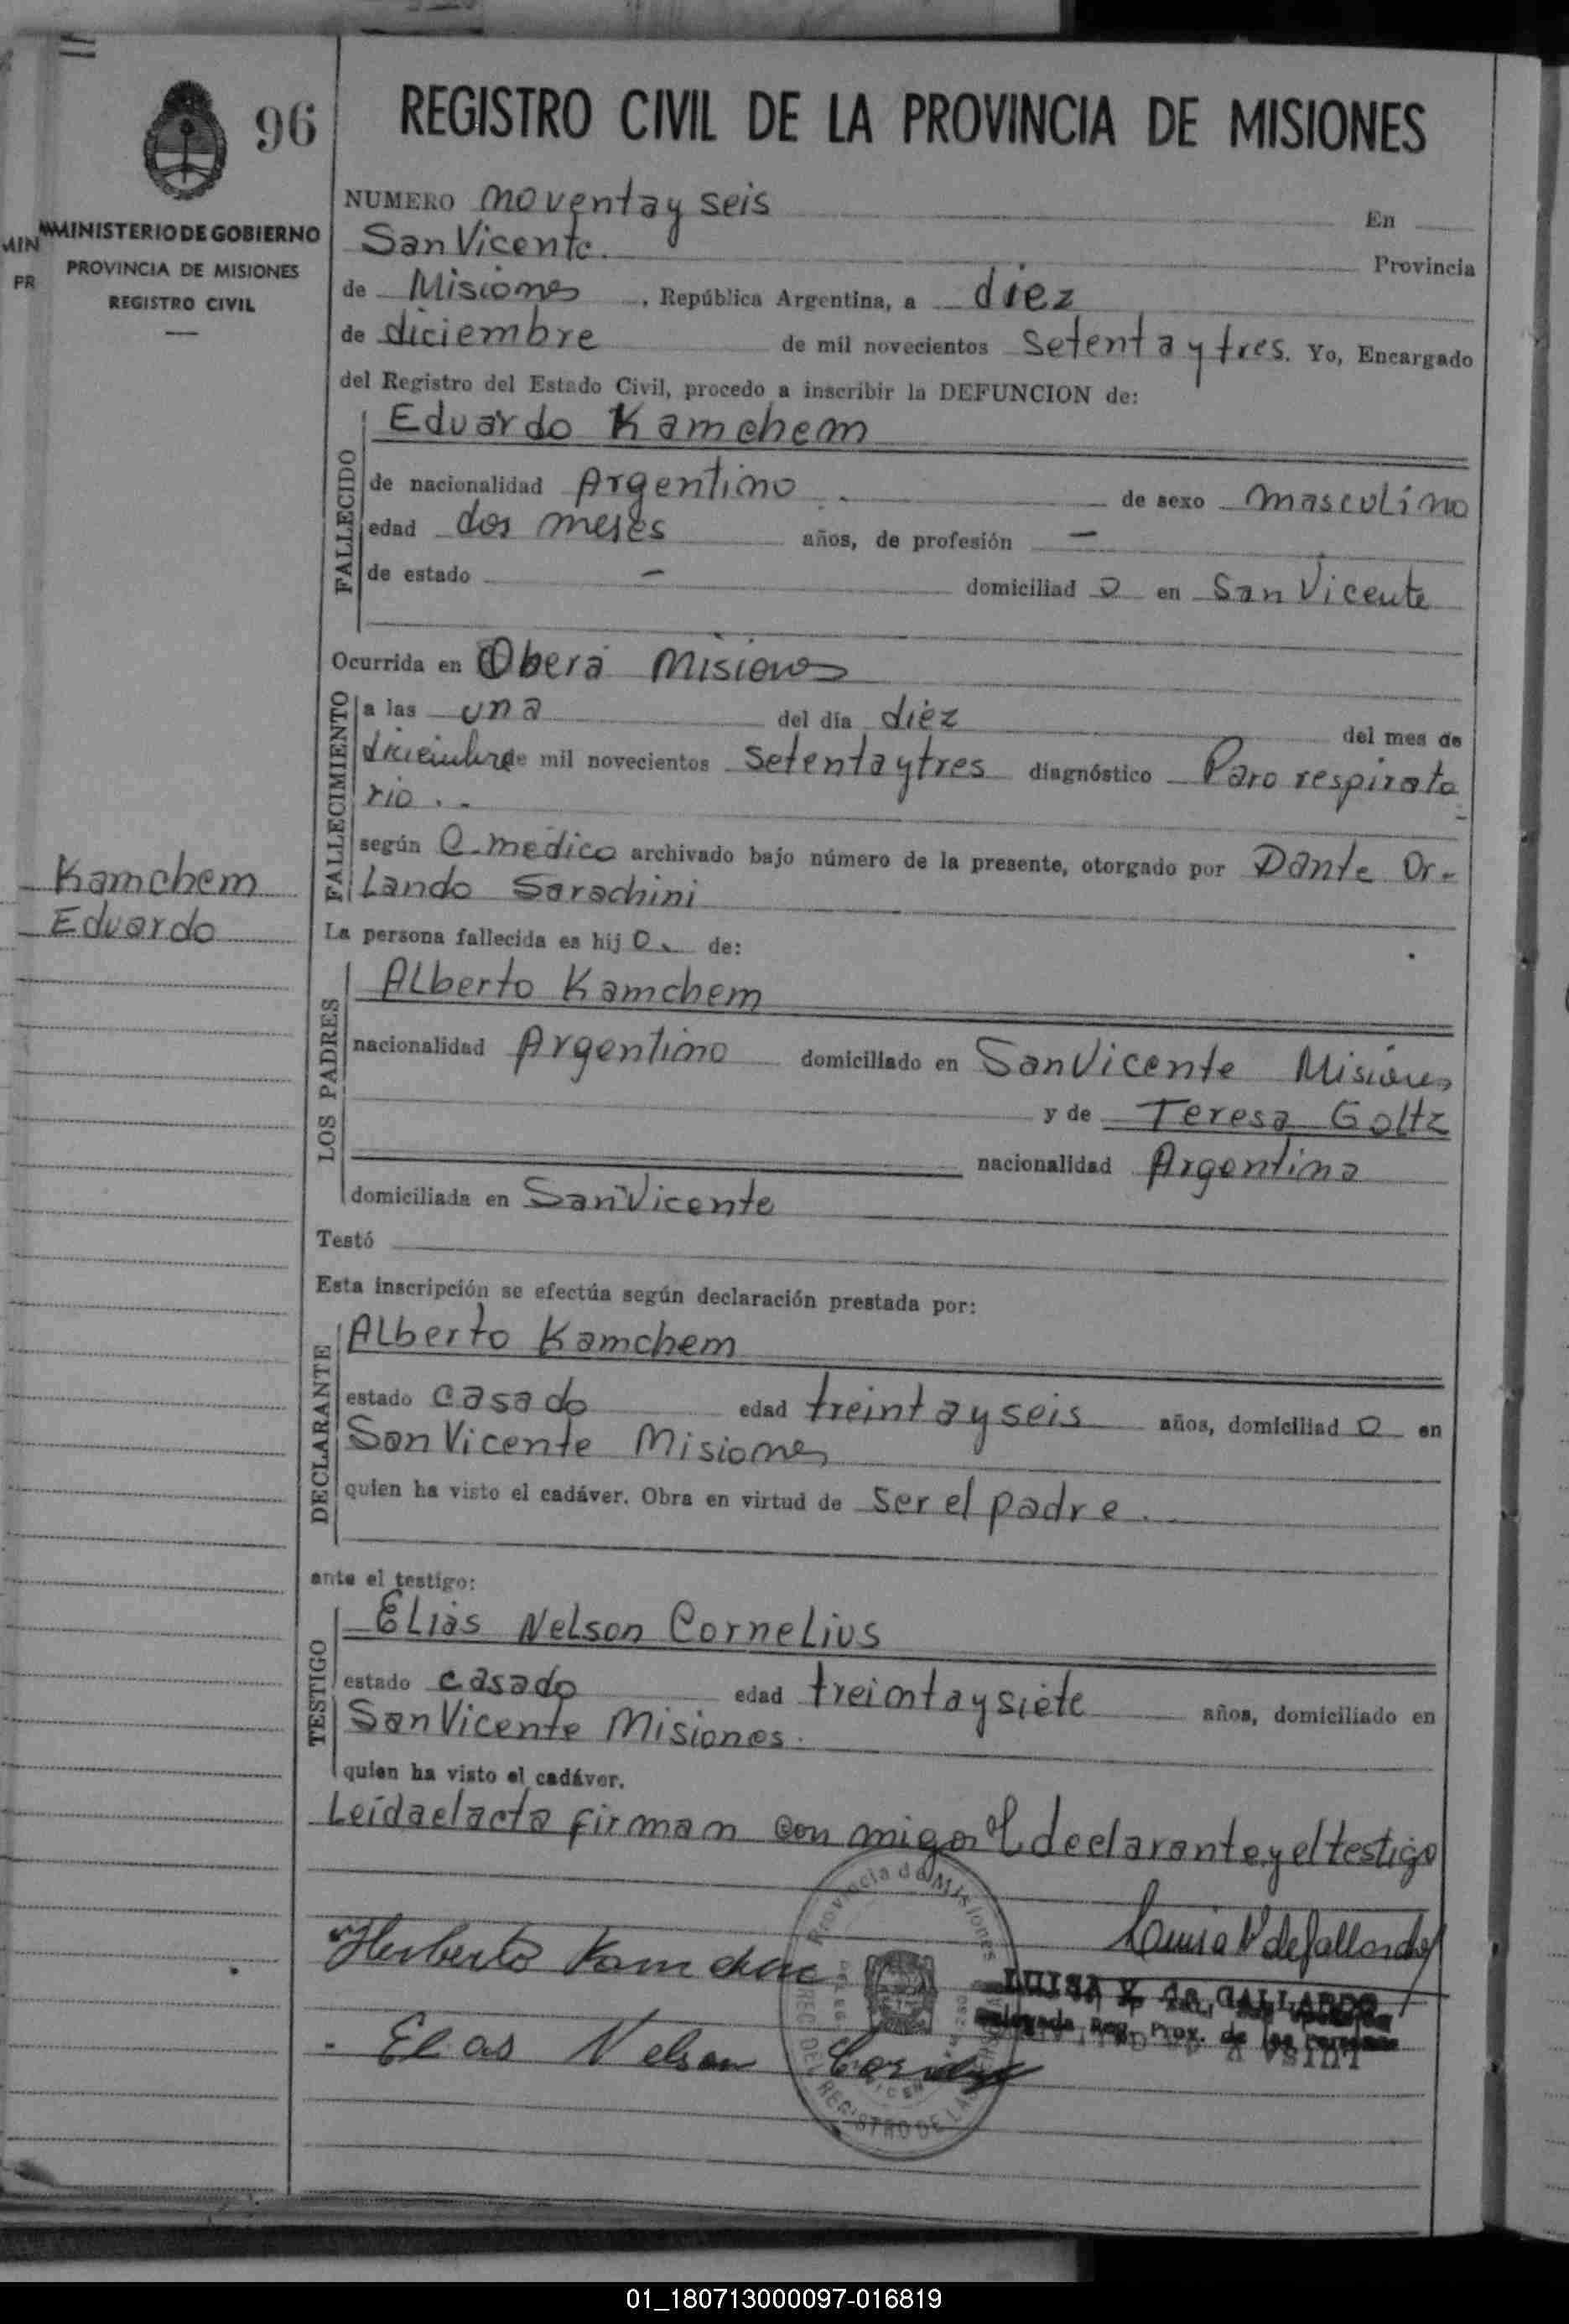 96
REGISTRO CIVIL DE LA PROVINCIA DE MISIONES
MINISTERIO DE GOBIERNO
PROVINCIA DE MISIONES
REGISTRO CIVIL
MIN
PR
NUMERO noventa y seis En
San Vicente. Provincia
de Misiones, República Argentina, a diez
de diciembre de mil novecientos setenta y tres. Yo, Encargado
del Registro del Estado Civil, procedo a inscribir la DEFUNCION de:
FALLECIDO
Eduardo Kamchem
de nacionalidad Argentino de sexo masculino
edad dos meses años, de profesión —
de estado — domiciliad o en San Vicente
Ocurrida en Oberá Misiones
FALLECIMIENTO
a las una del día diez del mes de
diciembre de mil novecientos setenta y tres diagnóstico Paro respirato
rio..
según C. medico archivado bajo número de la presente, otorgado por Dante Or-
Lando Sarachini
Kamchem
Eduardo
La persona fallecida es hij o. de:
LOS PADRES
Alberto Kamchem
nacionalidad Argentino domiciliado en San Vicente Misiones
y de Teresa Goltz
nacionalidad Argentina
domiciliada en San Vicente
Testó
Esta inscripción se efectúa según declaración prestada por:
DECLARANTE
Alberto Kamchem
estado casado edad treinta y seis años, domiciliad o en
San Vicente Misiones
quien ha visto el cadáver. Obra en virtud de ser el padre.
ante el testigo:
TESTIGO
Elias Nelson Cornelius
estado casado edad treinta y siete años, domiciliado en
San Vicente Misiones.
quien ha visto el cadáver.
Leída el acta firman con migo el declarante y el testigo
Provincia de Misiones
Luisa V de Gallardo
Herberto Kamchen
LUISA V. de GALLARDO
Delegada Reg. Prov. de las Personas
Elias Nelson
REGISTRO DE LAS
01_180713000097-016819